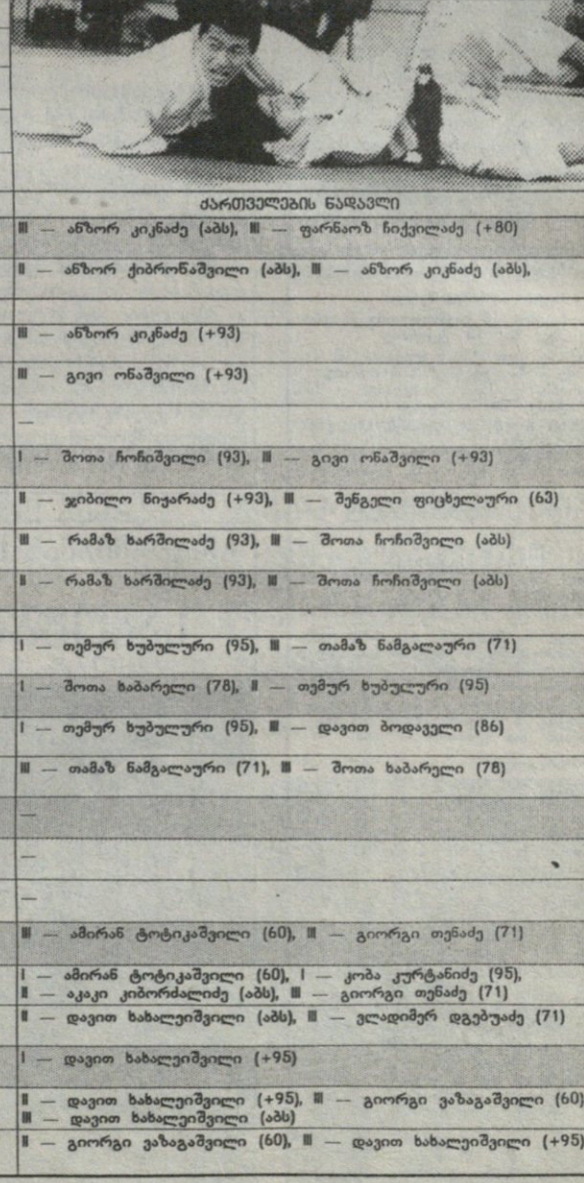 ქართველების ნადავლი
III — ანზორ კიკნაძე (აბს), III — ფარნაოზ ჩიქვილაძე (+80)
II — ანზორ ქიბრონაშვილი (აბს), III — ანზორ კიკნაძე (აბს),
III — ანზორ კიკნაძე (+93)
III — გივი ონაშვილი (+93)
—
I — შოთა ჩოჩიშვილი (93), III — გივი ონაშვილი (+93)
II — ჯიბილო ნიჟარაძე (+93), III — შენგელი ფიცხელაური (63)
III — რამაზ ხარშილაძე (93), III — შოთა ჩოჩიშვილი (აბს)
II — რამაზ ხარშილაძე (93), III — შოთა ჩოჩიშვილი (აბს)
I — თემურ ხუბულური (95), III — თამაზ ნამგალაური (71)
I — შოთა ხაბარელი (78), II — თემურ ხუბულური (95)
I — თემურ ხუბულური (95), III — დავით ბოდაველი (86)
III — თამაზ ნამგალაური (71), III — შოთა ხაბარელი (78)
—
—
—
III — ამირან ტოტიკაშვილი (60), III — გიორგი თენაძე (71)
I — ამირან ტოტიკაშვილი (60), I — კობა კურტანიძე (95),
II — აკაკი კიბორძალიძე (აბს), III — გიორგი თენაძე (71)
II — დავით ხახალეიშვილი (აბს), III — ვლადიმერ დგებუაძე (71)
I — დავით ხახალეიშვილი (+95)
II — დავით ხახალეიშვილი (+95), III — გიორგი ვაზაგაშვილი (60)
III — დავით ხახალეიშვილი (აბს)
II — გიორგი ვაზაგაშვილი (60), III — დავით ხახალეიშვილი (+95)